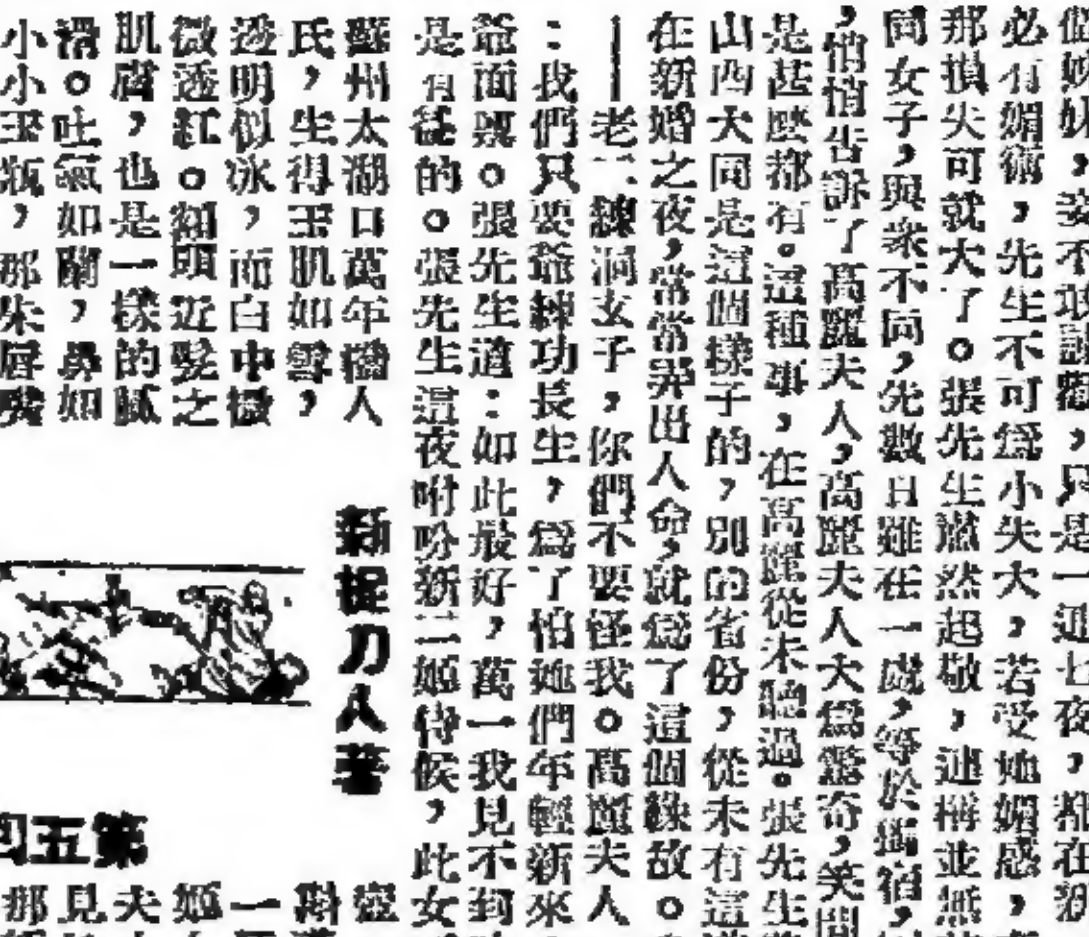 必有媚術，先生不可為小失大，若受她媚惑，
那損失可就大了。張先生肅然起敬，連稱並無
同女子，與衆不同，先數日雖在一處，等於獨宿，
，悄悄告訴了高麗夫人，高麗夫人大為驚奇，笑問
是甚麽都有。這種事，在高麗從未聽過。張先生
山西大同是這個樣子的，別的省份，從未有這
在新婚之夜，常常弄出人命，就為了這個緣故。
——老二練洞玄子，你們不要怪我。高麗夫人
：我們只要爺練功長生，為了怕她們年輕新來
爺面禀。張先生道：如此最好，萬一我見不到
是有徒的。張先生這夜咐吩新二姬侍候，此女
蘇州太湖口萬年橋人
氏，生得玉肌如雪，
透明似冰，而白中微
微透紅。額頭近髮之
肌膚，也是一樣的膩
滑。吐氣如蘭，鼻如
小小玉瓶，那朱唇
新捉刀人著
第五四
一
姬
夫
見
那